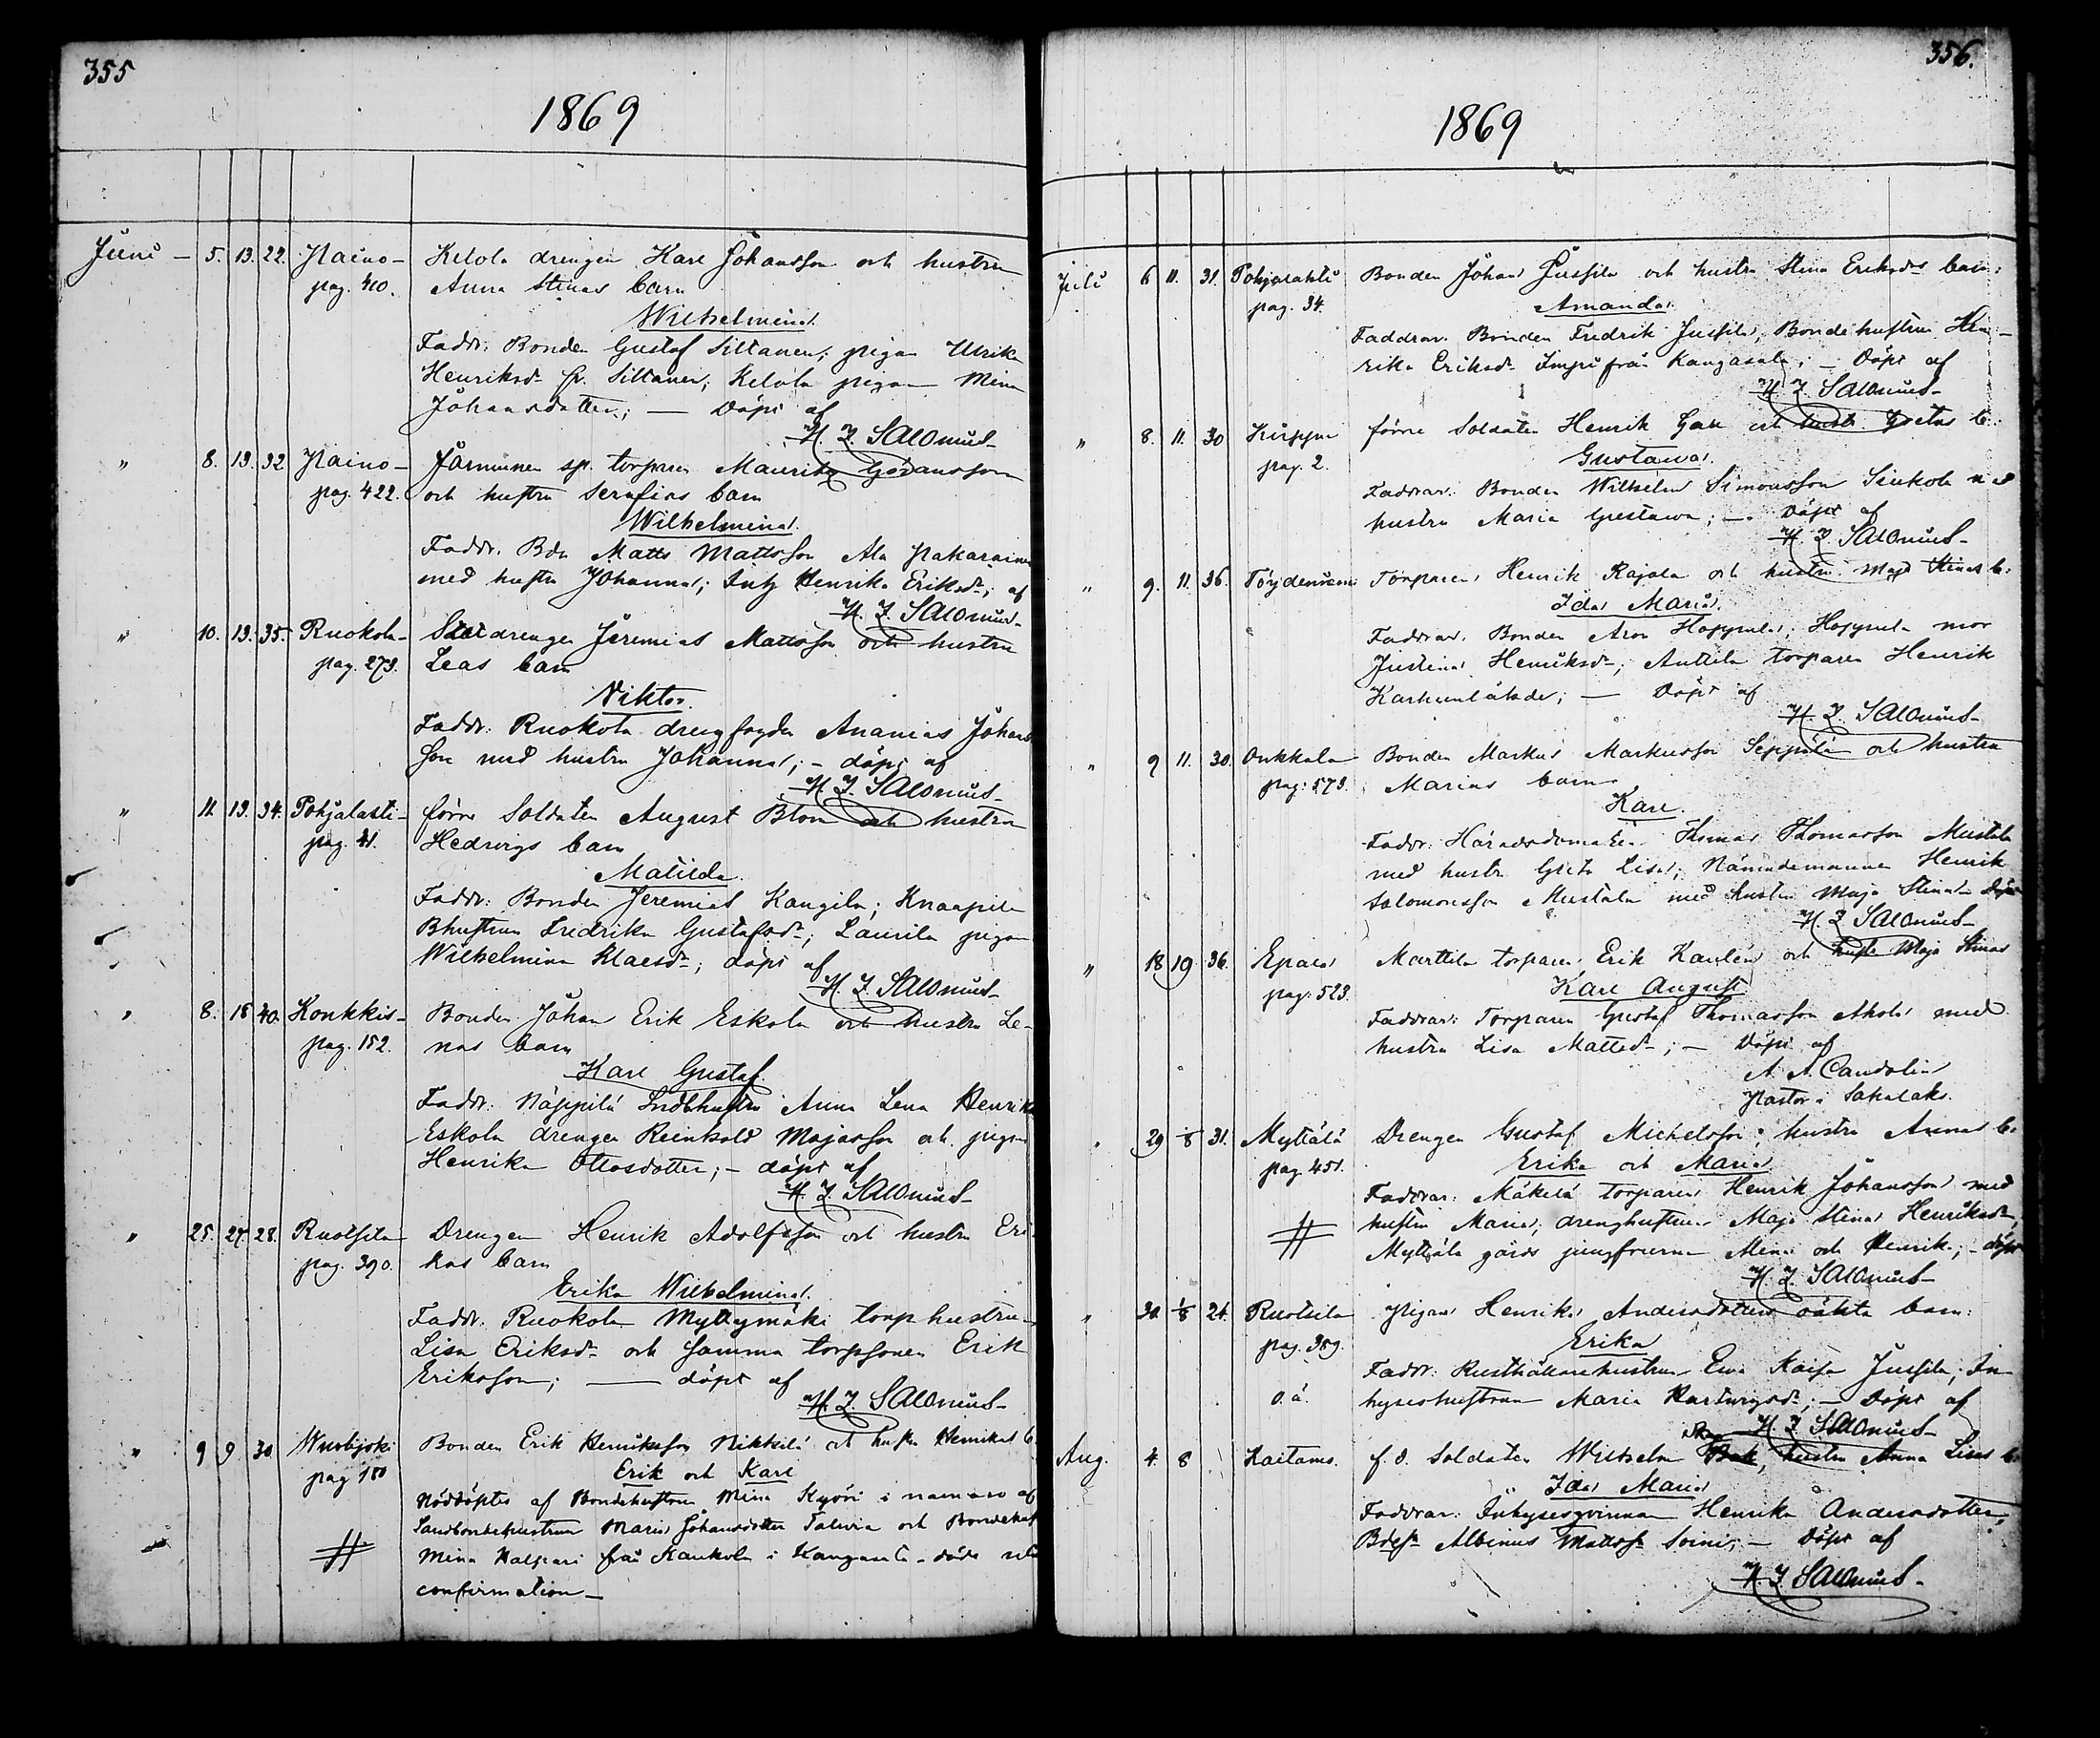 355
1869
Juni — 5. 13. 22. Paino- Kelola drengen Karl Johansson och hustru
pag. 410. Anna Stinas barn
Wilhelmina.
Faddr: Bonden Gustaf Siltanen; pigan Ulrika
Henriksdr fr. Siltanen; Kelola pigan Mina
Johansdotter; — döpt af
H. J. Salonius
" 8. 13. 32 Paino- sp. torparen Maurits Göransson
pag. 422. och hustru Serafias barn
Wilhelmina.
Faddr. Bdn Matts Mattsson Ala Pakarainen
med hustru Johanna; Enk Henrika Eriksdr; af
H. J. Salonius
" 10. 13. 35. Ruokola- drengen Jeremias Mattsson och hustru
pag. 273. Leas barn
Viktor.
Faddr: Ruokola drengfogden Ananias Johans
son med hustru Johanna; — döpt af
H. J. Salonius
" 11. 13. 34. Pohjalahti- förre Soldaten August Blom och hustru
pag. 41. Hedvigs barn
Matilda.
Faddr: Bonden Jeremias Kangila; Knaapila
Bhustrun Fredrika Gustafsdr; Laurila pigan
Wilhelmina Klaesdr; döpt af
H. J. Salonius
" 8. 18 40. Konkkis- Bonden Johan Erik Eskola och hustru Le-
pag. 152. nas barn
Karl Gustaf.
Faddr: Näppilä Lndbhustru Anna Lena Henriks
Eskola drengen Reinhold Majasson och pigan
Henrika Ottosdotter; — döpt af
H. J. Salonius
" 25. 27. 28. Ruotsila Drengen Henrik Adolfsson och hustru Eri
pag. 390. kas barn
Erika Wilhelmina.
Faddr: Ruokola Myllymäki torphustrun
Lisa Eriksdr och samma torpsonen Erik
Eriksson; — döpt af
H. J. Salonius
" 9 9. 30. Bonden Erik Henriksson Nikkilä och hustru Henrikas b.
pag 180 Erik och Karl
Nöddöptes af Bondehustrun Mina Kyöri i närvaro af
Landbondehustrun Maria Johansdotter Talvia och Bondehust
# Mina från Kaukola i Kangasala — döda utan
confirmation —
356.
1869
Juli 6 11. 31. Pohjalahti Bonden Johan Jussila och hustru Stina Eriksdrs barn:
pag. 34. Amanda.
Faddrar. Bonden Fredrik Jussila; Bondehustrun Hen-
rika Eriksdr från Kangasala; — Döpt af
H. J. Salonius
" 8. 11. 30 Kirppu förre Soldaten Henrik och hustr. Gretas b:
pag. 2. Gustava.
Faddrar: Bonden Wilhelm Simonsson Sinkola med
hustru Maria Gustava; —. Döpt af
H. J. Salonius
" 9. 11. 36. Torparen Henrik Rajala och hustru Maja Stinas b.
Ida Maria.
Faddrar. Bonden Aron Hoppula; Hoppula mor
Justina Henriksdr; Anttila torparen Henrik
— Döpt af
H. J. Salonius
" 9 11. 30. Onkkala Bonden Markus Markusson Seppälä och hustru
pag: 573. Marias barn
Karl.
Faddr: Häradsdomaren Thomas Thomasson Mustala
med hustr. Greta Lisa; Nämndemannen Henrik
Salomonsson Mustala med hustru Maja Stina — Döpt
H. J. Salonius
" 18 19 36. Epaala Marttila torparen Erik och hustr. Maja Stinas
pag: 523. Karl August.
Faddrar: Torparen Gustaf Thomasson Ahola med
hustru Lisa Mattsdr; — Döpt af
A. A. Candolin
Pastor i Sahalaks.
" 29 1/8 31. Myttälä Drengen Gustaf Michelsson; hustru Annas b.
pag. 451. Erika och Maria
Faddrar: Mäkelä torparen Henrik Johansson med
# hustru Maria; drenghustrun Maja Stina Henriksdr,
Myttälä gårds jungfrurna Mina och Henrika; — döpt
H. J. Salonius
" 30. 1/8 24. Ruotsila Pigan Henrika Andersdotters oäkta barn:
pag. 389. Erika
Faddr: Rusthållarehustrun Eva Kaisa Jussila; In-
o.ä. hyseshustrun Maria Hartvigsdr; — Döpt af
H. J. Salonius
Aug. 4. 8 Haitams. f. d. Soldaten Wilhelm, hustru Anna Lisas b.
Ida Maria
Faddrar: Inhysesqvinnan Henrika Andersdotter,
Albinus Mattss. Soini; — Döpt af
H. J. Salonius